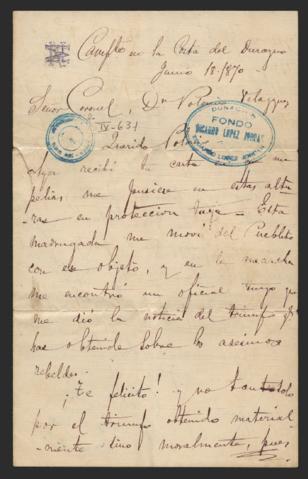 Campto en la Costa del Durazno
Junio 18/870
Señor Coronel, Dn Polonio Velazquez
IV-631
DONACION
FONDO
"RICARDO LOPEZ JORDAN"
Querido
Ayer recibí tu carta en que me
pedias me pusiese en estas altu
ras en proteccion tuya - Esta
madrugada me moví del Pueblito
con ese objeto, y en la marcha
me encontró un oficial tuyo que
me dió la noticia del triunfo qe
has obtenido sobre los asesinos
rebeldes.
¡Te felicito! y no tan solo
por el triunfo obtenido material-
mente sino moralmente, pues